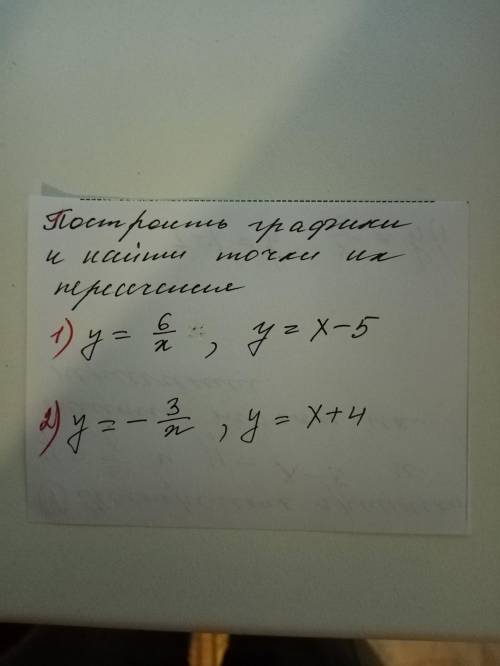 Построить графики
и найти точки их
пересечения
1) y = 6/x , y = x - 5
2) y = - 3/x , y = x + 4